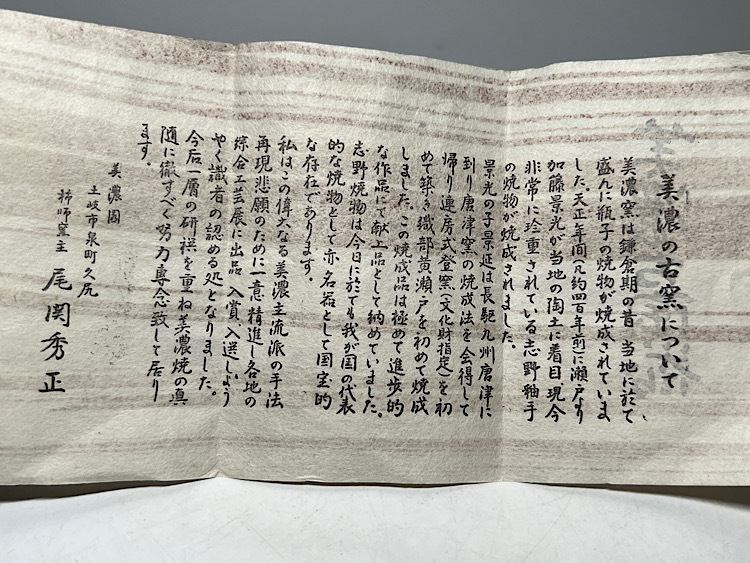 美濃の古窯について
美濃窯は鎌倉期の昔 当地に於て
盛んに瓶子の焼物が焼成されていま
した。天正年間(凡約四百年前)に瀬戸より
加藤景光が当地の陶土に着目現今
非常に珍重されている志野釉手
の焼物が焼成されました。
景光の子景延は長駆九州唐津に
到り唐津窯の焼成法を会得して
帰り連房式登窯(文化財指定)を初
めて築き織部黄瀬戸を初めて焼成
しました。この焼成品は極めて進歩的
な作品にて献上品として納めていました。
志野焼物は今日に於ても我が国の代表
的な焼物として亦名器として国宝的
な存在であります。
私はこの偉大なる美濃主流派の手法
再現悲願のために一意精進し各地の
綜合工芸展に出品 入賞、入選しよう
やく識者の認める処となりました。
今后一層の研を重ね美濃焼の真
随に徹すべく努力専念致して居り
ます。
美濃国
土岐市泉町久尻
窯主 尾関秀正